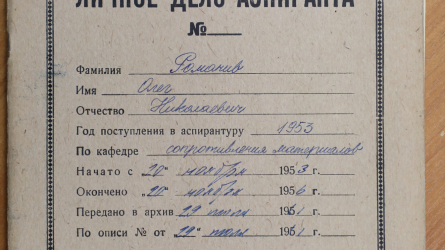 ЛИЧНОЕ ДЕЛО АСПИРАНТА
№
Фамилия Романив
Имя Олег
Отчество Николаевич
Год поступления в аспирантуру 1953
По кафедре сопротивления материалов
Начато с „20“ ноября 1953 г.
Окончено „20“ ноября 1956 г.
Передано в архив 29 июля 1961 г.
По описи № от „29“ июля 1961 г.